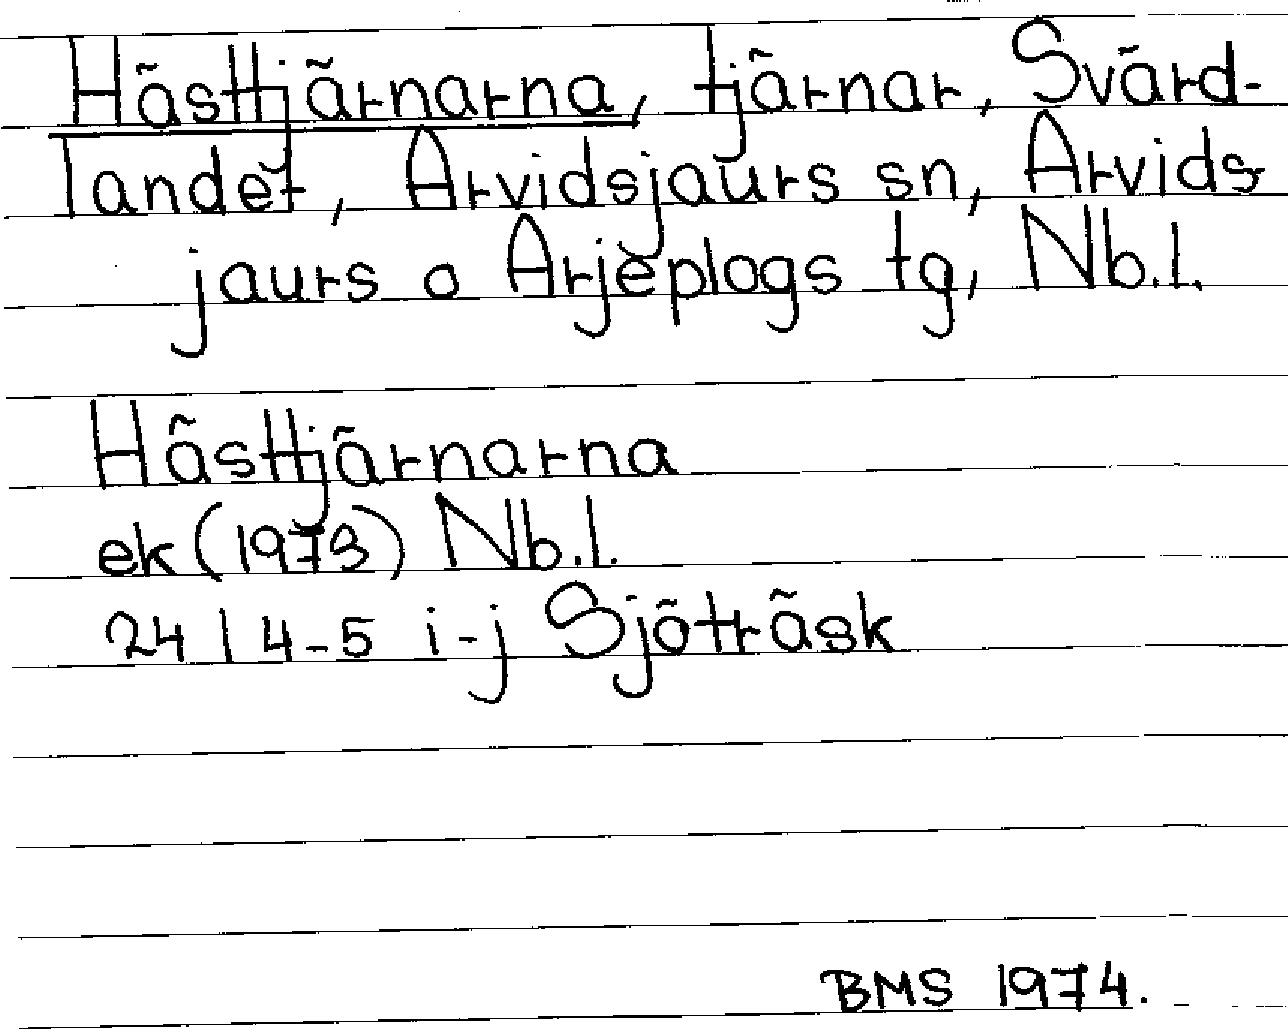 Hästtjärnarna, tjärnar, Svärd-
landet, Arvidsjaurs sn, Arvids-
jaurs o Arjeplogs tg, Nb.l.
Hästtjärnarna
ek (1973) Nb.l.
24 I 4-5 i-j Sjöträsk
BMS 1974.